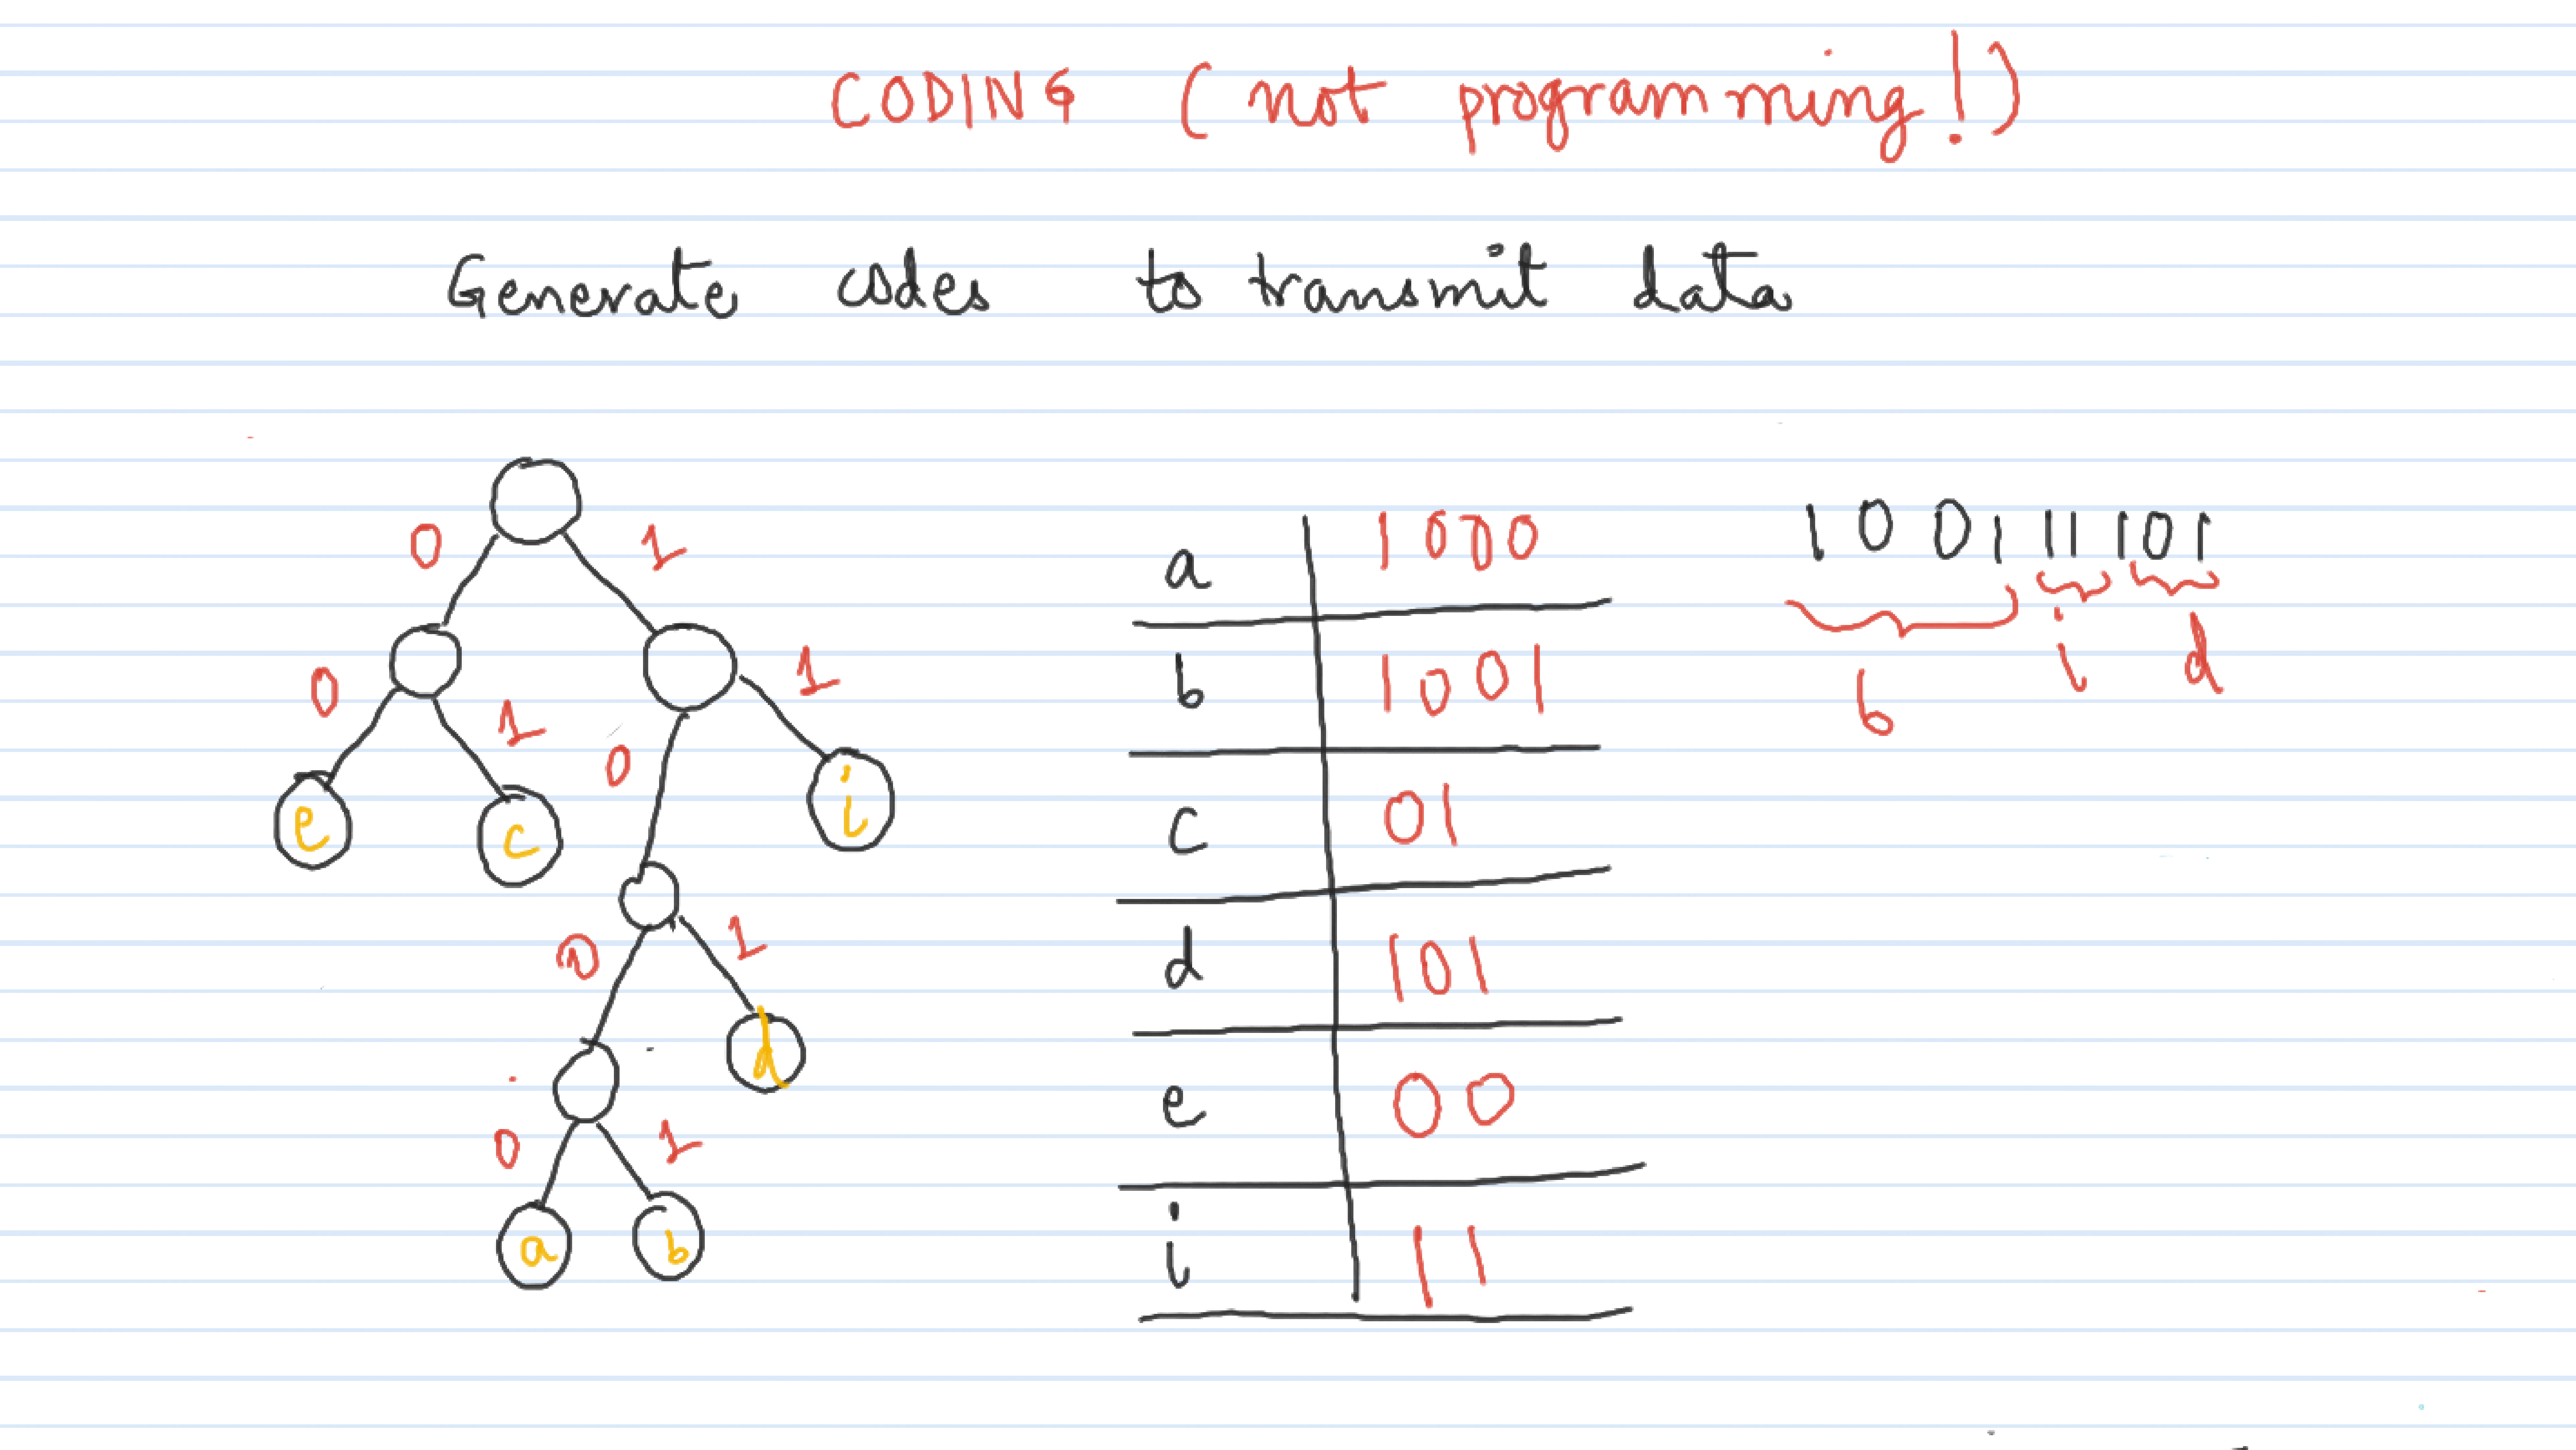 CODING (not programming!)
Generate codes to transmit data
0 1
0 1 0 1
e c i
0 1
d
0 1
a b
a 1000
b 1001
c 01
d 101
e 00
i 11
1001 11 101
b i d